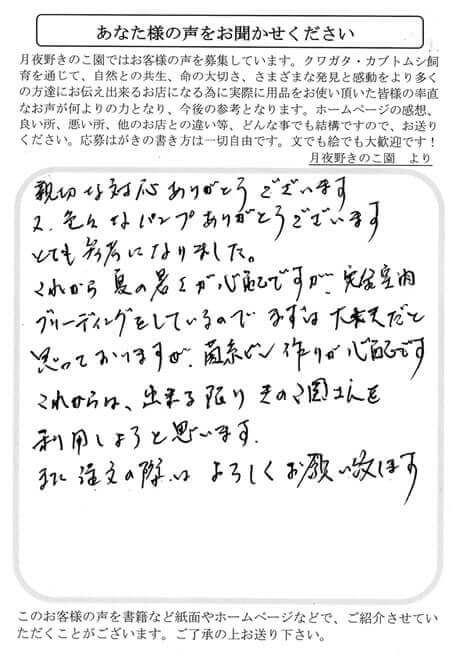 あなた様の声をお聞かせください
月夜野きのこ園ではお客様の声を募集しています。クワガタ・カブトムシ飼
育を通じて、自然との共生、命の大切さ、さまざまな発見と感動をより多く
の方達にお伝え出来るお店になる為に実際に用品をお使い頂いた皆様の率直
なお声が何よりの力となり、今後の参考となります。ホームページの感想、
良い所、悪い所、他のお店との違い等、どんな事でも結構ですので、お送り
ください。応募はがきの書き方は一切自由です。文でも絵でも大歓迎です！
月夜野きのこ園　より
親切な対応ありがとうございます
又、色々なパンフありがとうございます
とても参考になりました。
これから夏の暑さが心配ですが、完全室内
ブリーディングをしているのでまずは大丈夫だと
思っておりますが、菌糸ビン作りが心配です
これからは、出来る限りきのこ園さんを
利用しようと思います。
また注文の際はよろしくお願い致します
このお客様の声を書籍など紙面やホームページなどで、ご紹介させてい
ただくことがございます。ご了承の上お送り下さい。